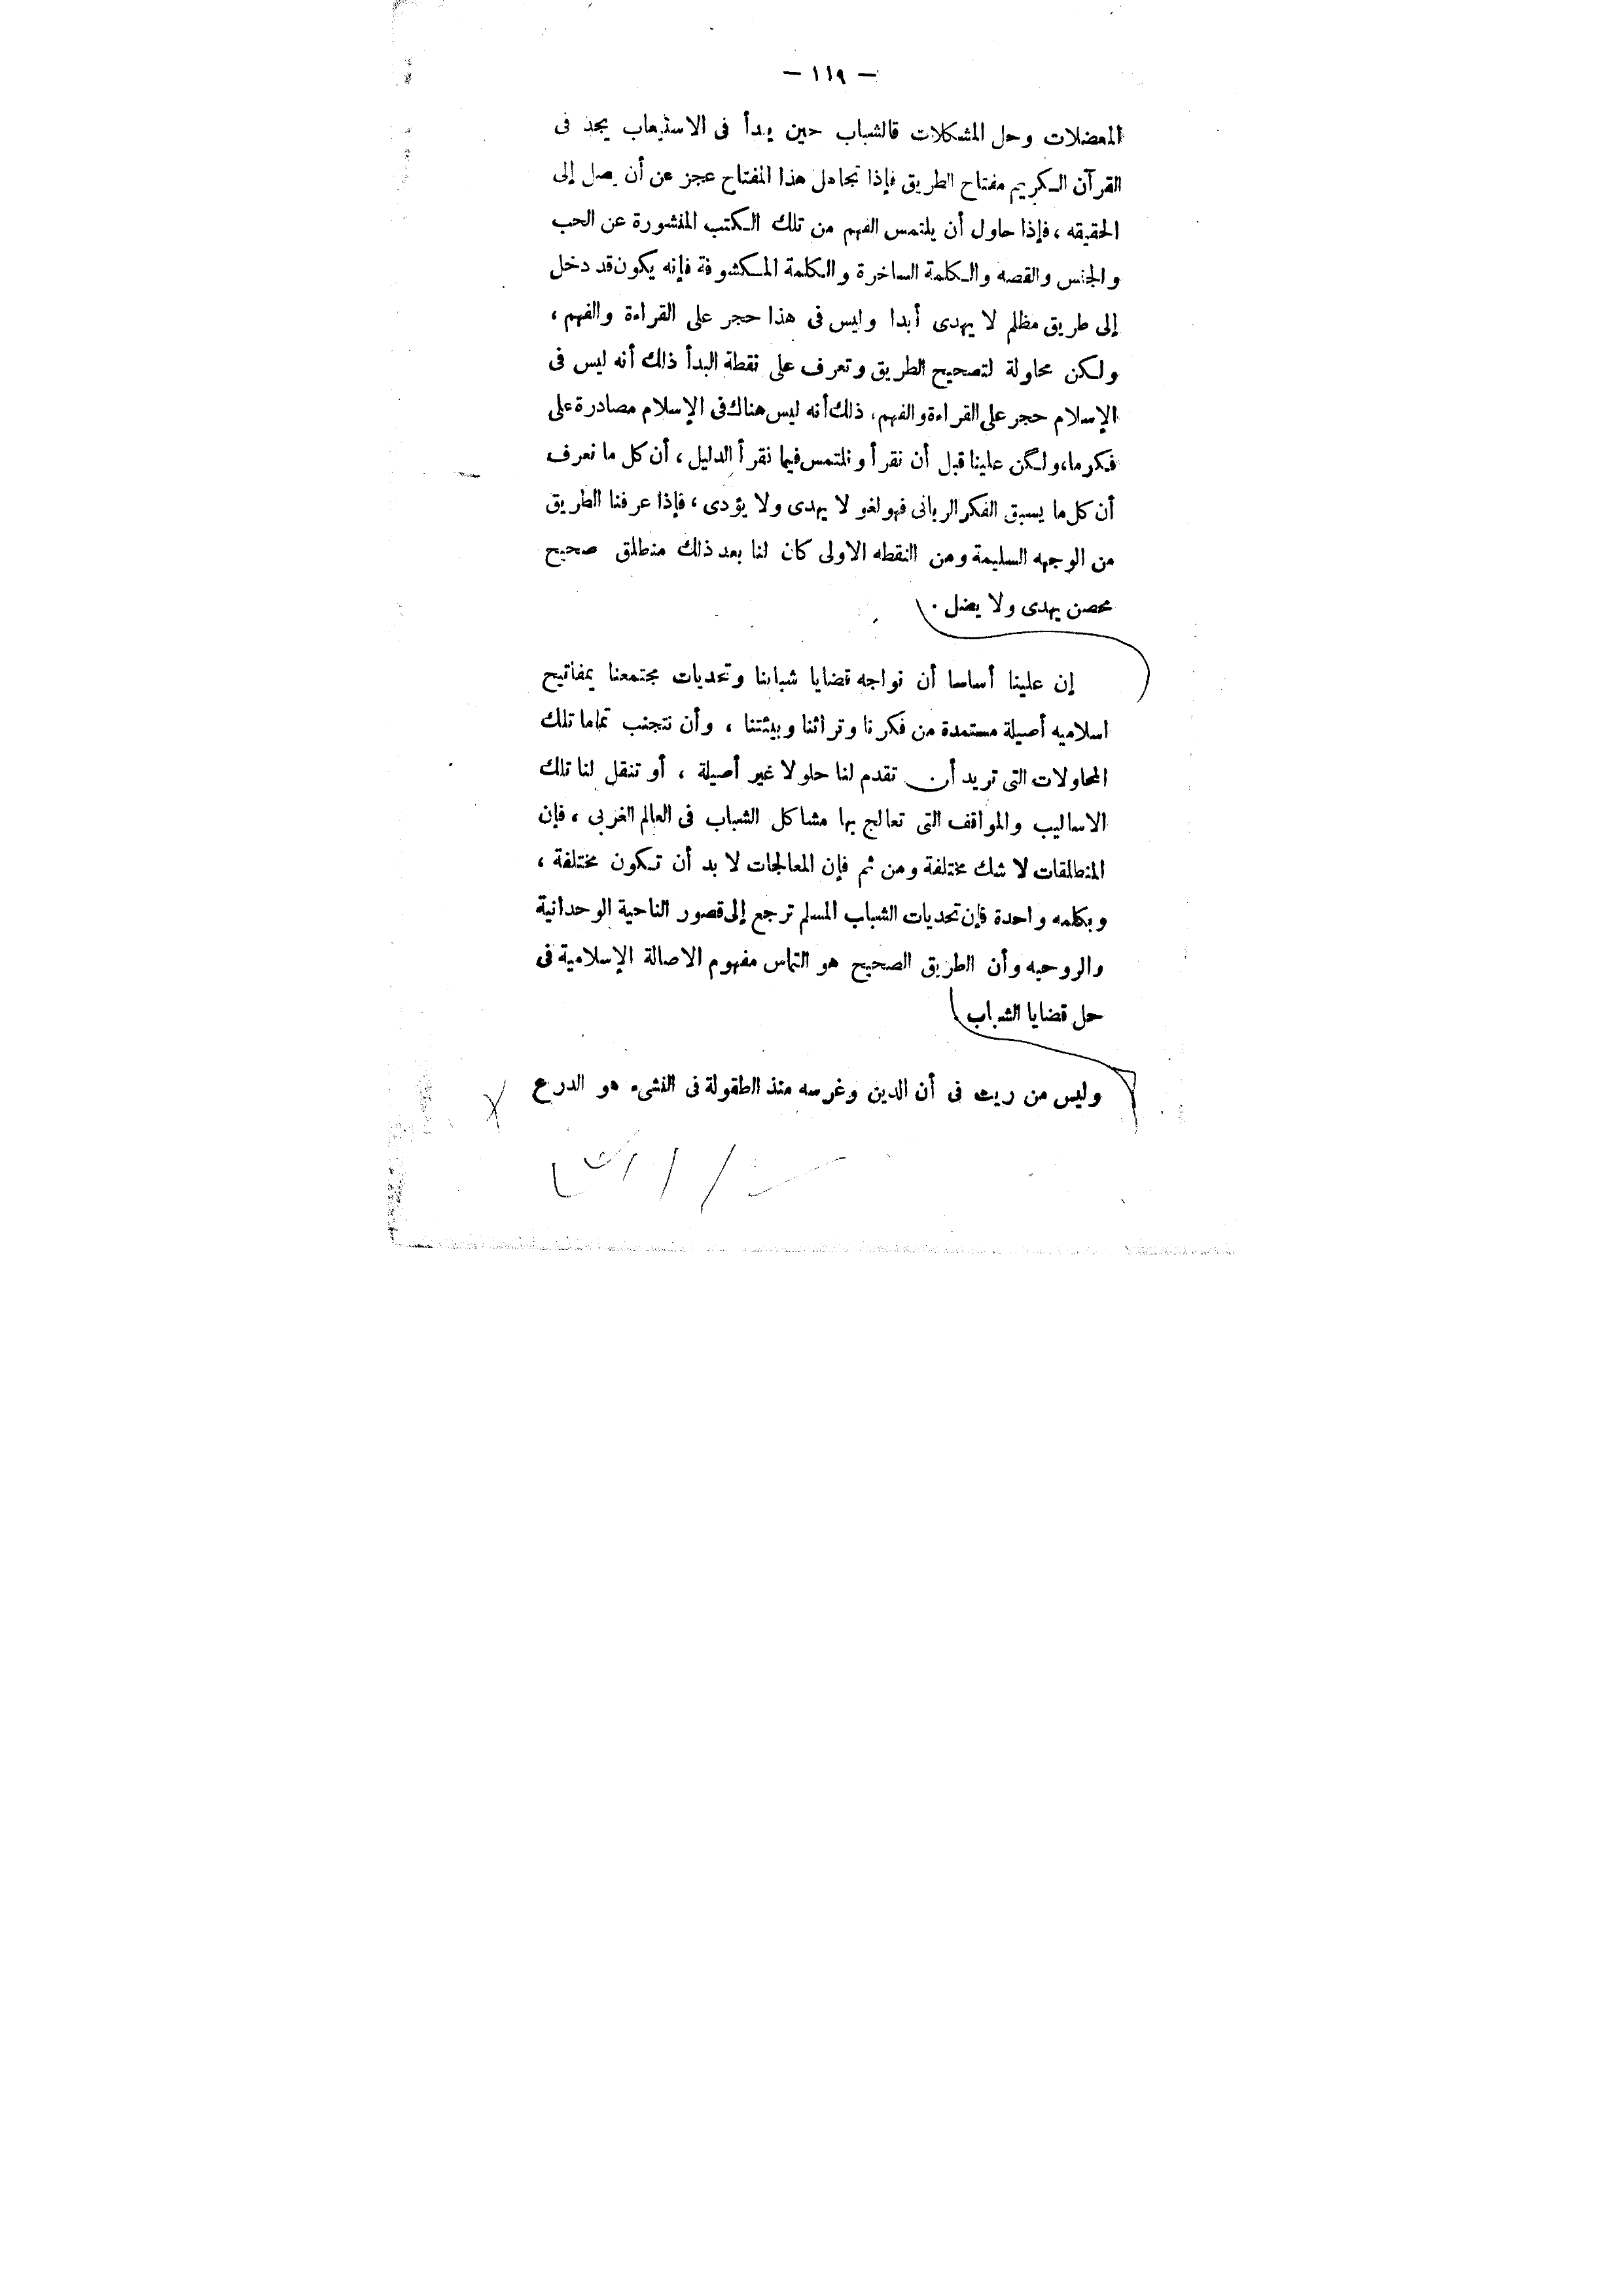 — ١١٩ —
المعضلات وحل المشكلات قالشباب حين يبدأ فى الاستيعاب يجد فى
القرآن الكريم مفتاح الطريق فإذا تجاهل هذا المفتاح عجز عن أن يصل إلى
الحقيقه ، فإذا حاول أن يلتمس الفهم من تلك الكتب المنشورة عن الحب
والجنس والقصه والكلمة الساخرة والكلمة المكشوفة فإنه يكون قد دخل
إلى طريق مظلم لا يهدى أبدا وليس فى هذا حجر على القراءة والفهم ،
ولكن محاولة لتصحيح الطريق وتعرف على نقطة البدأ ذلك أنه ليس فى
الإسلام حجر على القراءة والفهم ، ذلك أنه ليس هناك فى الإسلام مصادرة على
فكر ما، ولكن علينا قبل أن نقرأ ونلتمس فيما نقرأ الدليل ، أن كل ما نعرف
أن كل ما يسبق الفكر الربانى فهو لغو لا يهدى ولا يؤدى ، فإذا عرفنا الطريق
من الوجهه السليمة ومن النقطه الاولى كان لنا بعد ذلك منطلق صحيح
محصن يهدى ولا يضل .
إن علينا أساسا أن نواجه قضايا شبابنا وتحديات مجتمعنا بمفاتيح
اسلاميه أصيلة مستمدة من فكرنا وتراثنا وبيئتنا ، وأن نتجنب تماما تلك
المحاولات التى تريد أن تقدم لنا حلولا غير أصيلة ، أو تنقل لنا تلك
الاساليب والمواقف التى تعالج بها مشاكل الشباب فى العالم الغربى ، فإن
المنطلقات لا شك مختلفة ومن ثم فإن المعالجات لا بد أن تكون مختلفة ،
وبكلمه واحدة فإن تحديات الشباب المسلم ترجع إلى قصور الناحية الوحدانية
والروحيه وأن الطريق الصحيح هو التماس مفهوم الاصالة الإسلامية فى
حل قضايا الشباب
وليس من ريب فى أن الدين وغرسه منذ الطقولة فى النشىء هو الدرع